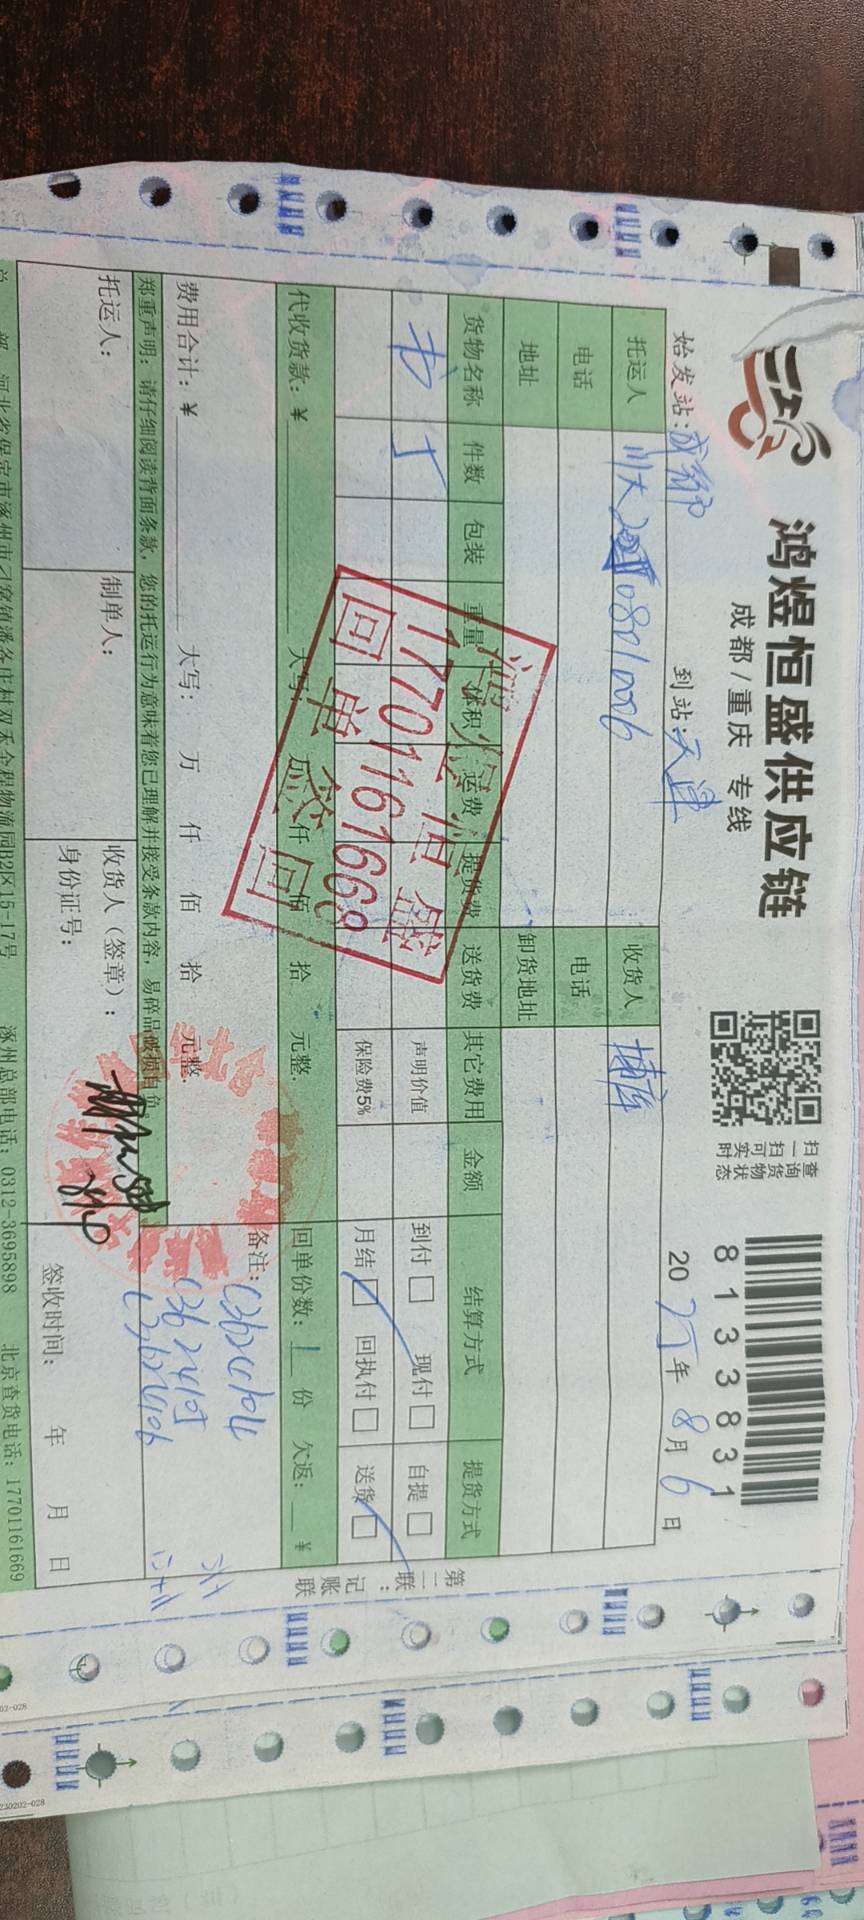 鸿煜恒盛供应链
成都/重庆 专线
扫一扫可实时
查询货物状态
81338831
始发站:成都 到站:天津 2025年8月6日
托运人 川大 08010006 收货人
电话 电话
地址 卸货地址
货物名称 件数 包装 重量 体积 运费 提货费 送货费 其它费用 金额 结算方式 提货方式
书 5 声明价值 到付 现付 自提
保险费5% 月结 回执付 送货
代收货款:¥ 大写: 万 仟 佰 拾 元整. 回单份数: 1 份 欠返: ¥
费用合计:¥ 大写: 万 仟 佰 拾 元整. 备注:
郑重声明:请仔细阅读背面条款,您的托运行为意味着您已理解并接受条款内容,易碎品破损自负.
托运人: 制单人: 收货人(签章): 签收时间: 年 月 日
身份证号:
河北省保定市涿州市刁窝镇潘各庄村双禾全程物流园B2区15-17号 涿州总部电话:0312-3695898 北京查货电话:17701161669
第二联:记账联
鸿煜恒盛
17701161669
回单签回
230202-028